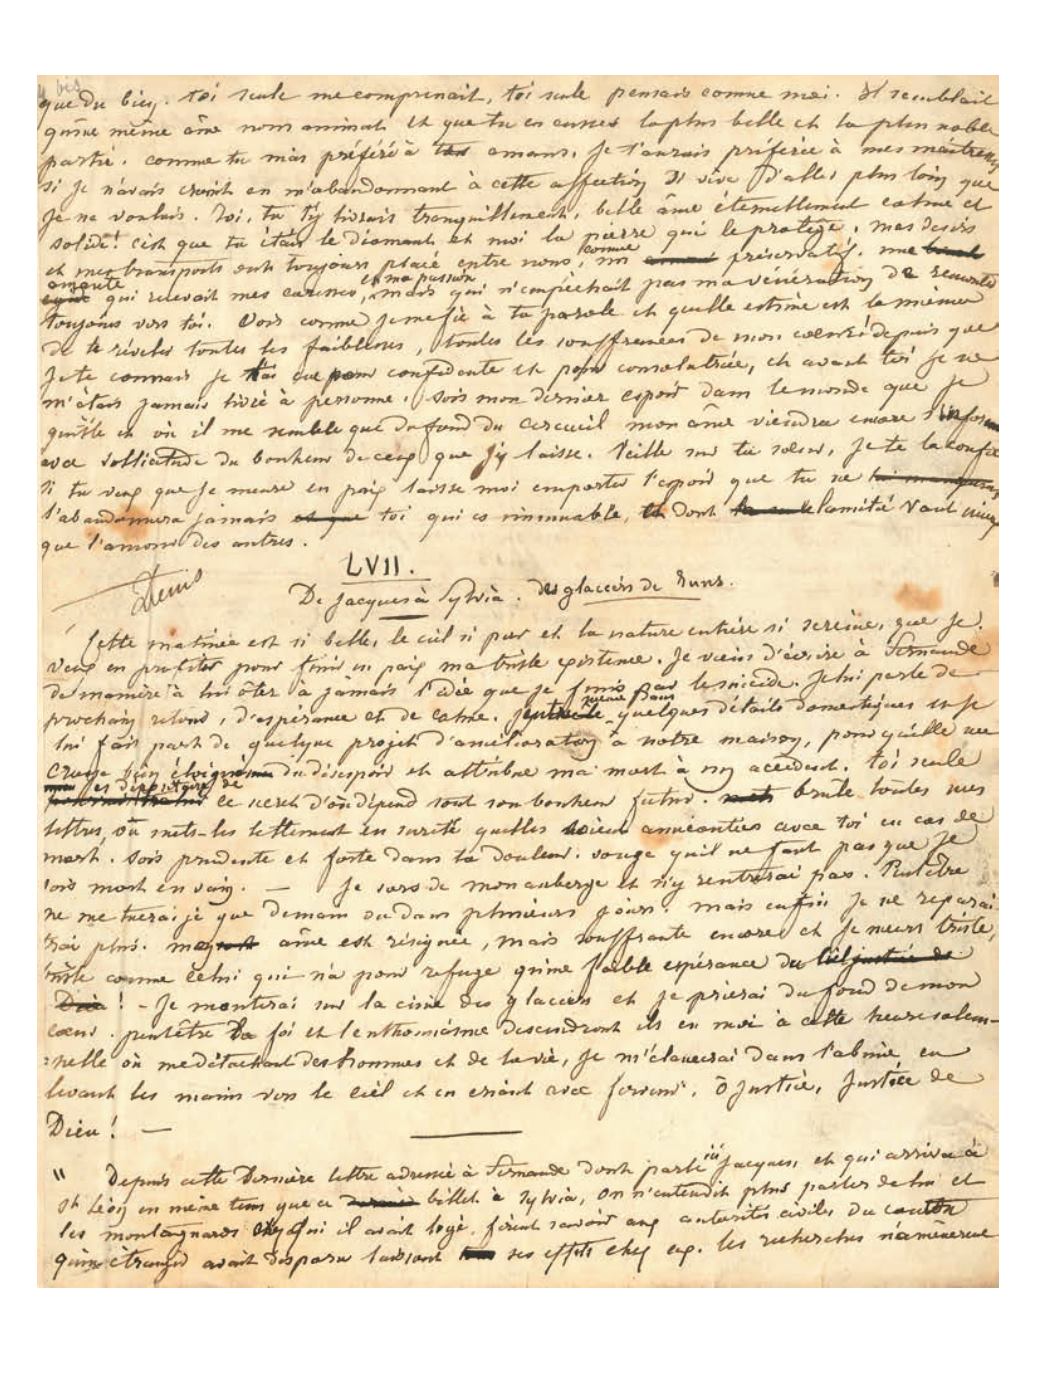 bis
que du bien. toi seule me comprenait, toi seule pensais comme moi. Il semblait
qu'une même âme nous animait et que tu en eusses la plus belle et la plus noble
partie. comme tu m'as préféré à tes amans, je t'aurais préférée à mes maîtresses
si je n'avais craint en m'abandonnant à cette affection si vive d'aller plus loin que
je ne voulais. Toi, tu t'y livrais tranquillement, belle âme éternellement calme et
solide! c'est que tu étais le diamant et moi la pierre qui le protège. mes desirs
et mes transports ont toujours placé entre nous, comme un préservatif, une
amante qui recevait mes caresses, et ma passion mais qui n'empêchait pas ma vénération de remonter
toujours vers toi. Vois comme je me fie à ta parole et quelle estime est la mienne
de te révéler toutes les faiblesses, toutes les souffrances de mon coeur! depuis que
je te connais je t'ai eue pour confidente et pour consolatrice, et avant toi je ne
m'étais jamais livré à personne. Sois mon dernier espoir dans le monde que je
quitte et où il me semble que du fond du cercueil mon âme viendra encore s'informer
avec sollicitude du bonheur de ceux que j'y laisse. Veille sur ta soeur, je te la confie
si tu veux que je meure en paix laisse moi emporter l'espoir que tu ne
l'abandonnera jamais toi qui es immuable, dont l'amitié vaut mieux
que l'amour des autres.
LVII.
De Jacques à Sylvia. Des glaciers de Runs.
Cette matinée est si belle, le ciel si pur et la nature entière si sereine, que je
veux en profiter pour finir en paix ma triste existence. Je viens d'écrire à Fernande
de manière à lui ôter à jamais l'idée que je finis par le suicide. Je lui parle de
prochain retour, d'espérance et de calme. J'entre quelques détails domestiques et je
lui fais part de quelque projet d'amélioration à notre maison, pour qu'elle me
croye bien éloigné du désespoir et attribue ma mort à un accident. toi seule
es dépositaire de ce secret d'où dépend tout son bonheur futur. brûle toutes mes
lettres, ou mets-les tellement en sureté quelles soient anéanties avec toi en cas de
mort. Sois prudente et forte dans ta douleur. songe qu'il ne faut pas que je
sois mort en vain. — Je sors de mon auberge et n'y rentrerai pas. Peut être
ne me tuerai je que demain ou dans plusieurs jours. mais enfin je ne reparai
trai plus. mon âme est résignée, mais souffrante encore, et je meurs triste,
triste comme celui qui n'a pour refuge qu'une faible espérance du ciel
! - Je monterai sur la cime des glaciers et je prierai du fond de mon
coeur. peutêtre la foi et l'enthousiasme descendront ils en moi à cette heure solem-
:nelle où me détachant des hommes et de la vie, je m'élancerai dans l'abîme, en
levant les mains vers le ciel et en criant avec ferveur, ô justice, justice de
Dieu! —
" Depuis cette dernière lettre adressée à Fernande dont parle ici Jacques, et qui arriva à
St Léon en même tems que ce billet à Sylvia, on n'entendit plus parler de lui et
les montagnards chez qui il avait logé, firent savoir aux autorités civiles du canton
qu'un étranger avait disparu laissant ses effets chez eux. les recherches n'amenèrent